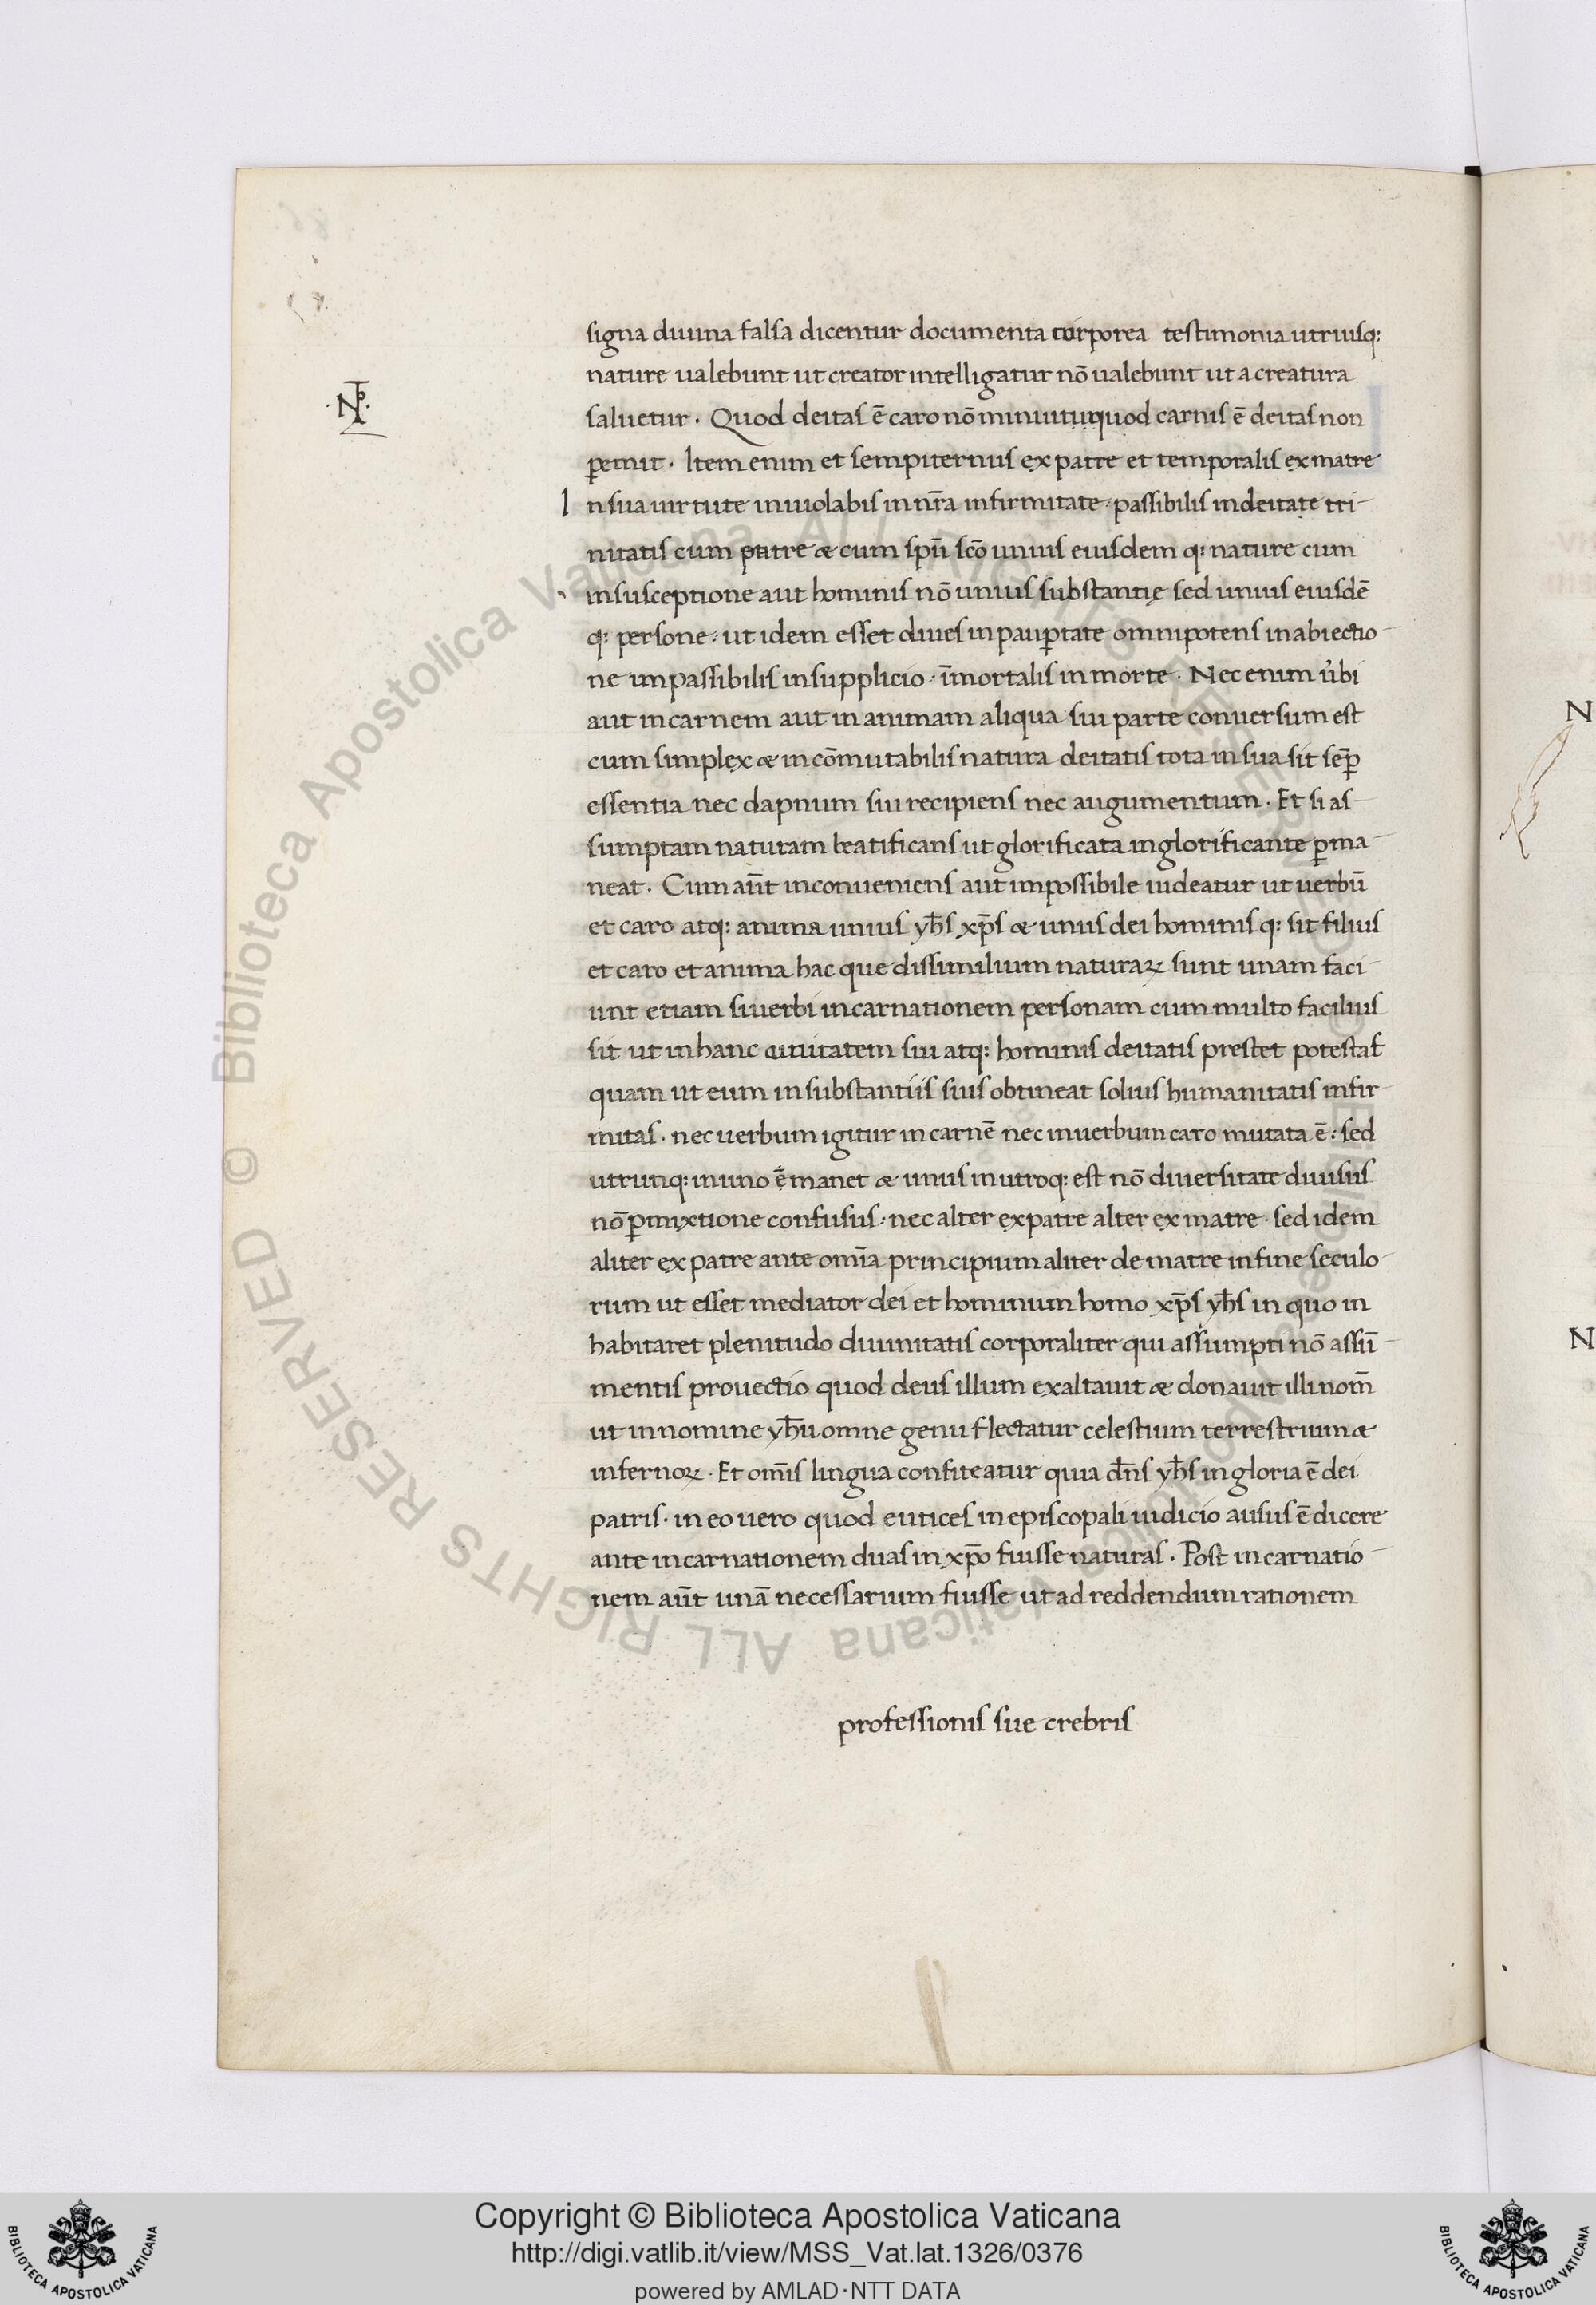 signa diuina falsa dicentur documenta corporea testimonia utriusq:
nature ualebunt ut creator intelligatur nō ualebunt ut a creatura
saluetur. Quod deitas ē caro nō minuit quod carnis ē deitas non
ꝑemit. Item enim et sempiternus ex patre et temporalis ex matre
I n sua uirtute inuiolabis in nr̄a infirmitate. passibilis in deitate tri-
nitatis cum patre & cum spū scō unius eiusdem q: nature cum
in susceptione aut hominis nō unius substantię sed unius eiusdē
q: persone. ut idem esset diues in pauꝑtate omnipotens in abiectio-
ne impassibilis in supplicio. īmortalis in morte. Nec enim ubi
aut in carnem aut in animam aliqua sui parte conuersum est
cum simplex & incōmutabilis natura deitatis tota in sua sit seꝑ
essentia nec dapnum sui recipiens nec augumentum. Et si as-
sumptam naturam beatificans ut glorificata in glorificante ꝑma-
neat. Cum aūt inconueniens aut impossibile uideatur ut uerbū
et caro atq: anima unius yh̄s xp̄s & unus dei hominis q: sit filius
et caro et anima hac que dissimilium naturaꝝ sunt unam faci-
unt etiam si uerbi incarnationem personam cum multo facilius
sit ut in hanc unitatem sui atq: hominis deitatis prestet potestas
quam ut eum in substantiis suis obtineat solius humanitatis infir-
mitas. nec uerbum igitur in carnē nec in uerbum caro mutata ē: sed
utrunq: in uno ē manet & unus in utroq: est nō diuersitate diuisus
nō ꝑmixtione confusus. nec alter ex patre alter ex matre. sed idem
aliter ex patre ante omīa principium aliter de matre in fine seculo-
rum ut esset mediator dei et hominum homo xp̄s yh̄s in quo in
habitaret plenitudo diuinitatis corporaliter qui assumpti nō assū-
mentis prouectio quod deus illum exaltauit & donauit illi nom̄
ut in nomine yh̄u omne genu flectatur celestium terrestrium &
infernoꝝ. Et om̄is lingua confiteatur quia dn̄s yh̄s in gloria ē dei
patris. in eo uero quod eutices in episcopali iudicio ausus ē dicere
ante incarnationem duas in xp̄o fuisse naturas. Post incarnatio-
nem aūt unā necessarium fuisse ut ad reddendum rationem
professionis sue crebris
N
N
© Biblioteca Apostolica Vaticana ALL RIGHTS RESERVED
Copyright © Biblioteca Apostolica Vaticana
http://digi.vatlib.it/view/MSS_Vat.lat.1326/0376
powered by AMLAD·NTT DATA
BIBLIOTECA APOSTOLICA VATICANA
BIBLIOTECA APOSTOLICA VATICANA